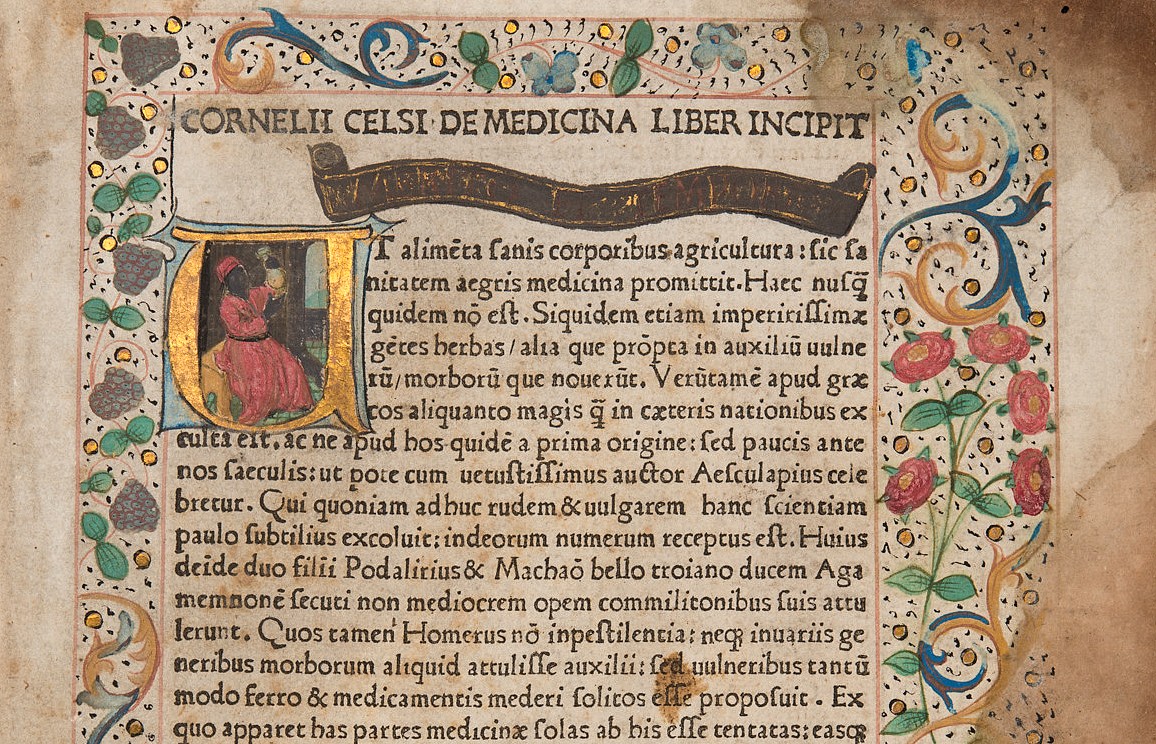 CORNELII CELSI·DE MEDICINA LIBER INCIPIT
UT alimēta ſanis corporibus agricultura: ſic ſa
nitatem aegris medicina promittit. Haec nuſq̄
quidem nō eſt. Siquidem etiam imperitiſſimæ
gētes herbas/alia que prōpta in auxiliū uulne
rū/morborū que nouerūt. Verūtamē apud græ
cos aliquanto magis q̄ in cæteris nationibus ex
culta eſt. ac ne apud hos quidē a prima origine: ſed paucis ante
nos ſaeculis: ut pote cum uetuſtiſſimus auctor Aeſculapius cele
bretur. Qui quoniam adhuc rudem & uulgarem hanc ſcientiam
paulo ſubtilius excoluit: indeorum numerum receptus eſt. Huius
deīde duo filii Podalirius & Machaō bello troiano ducem Aga
memnonē ſecuti non mediocrem opem commilitonibus ſuis attu
lerunt. Quos tamen Homerus nō inpeſtilentia: neqꝫ inuariis ge
neribus morborum aliquid attuliſſe auxilii: ſed uulneribus tantū
modo ferro & medicamentis mederi ſolitos eſſe propoſuit. Ex
quo apparet has partes medicinæ ſolas ab his eſſe tentatas: easqꝫ